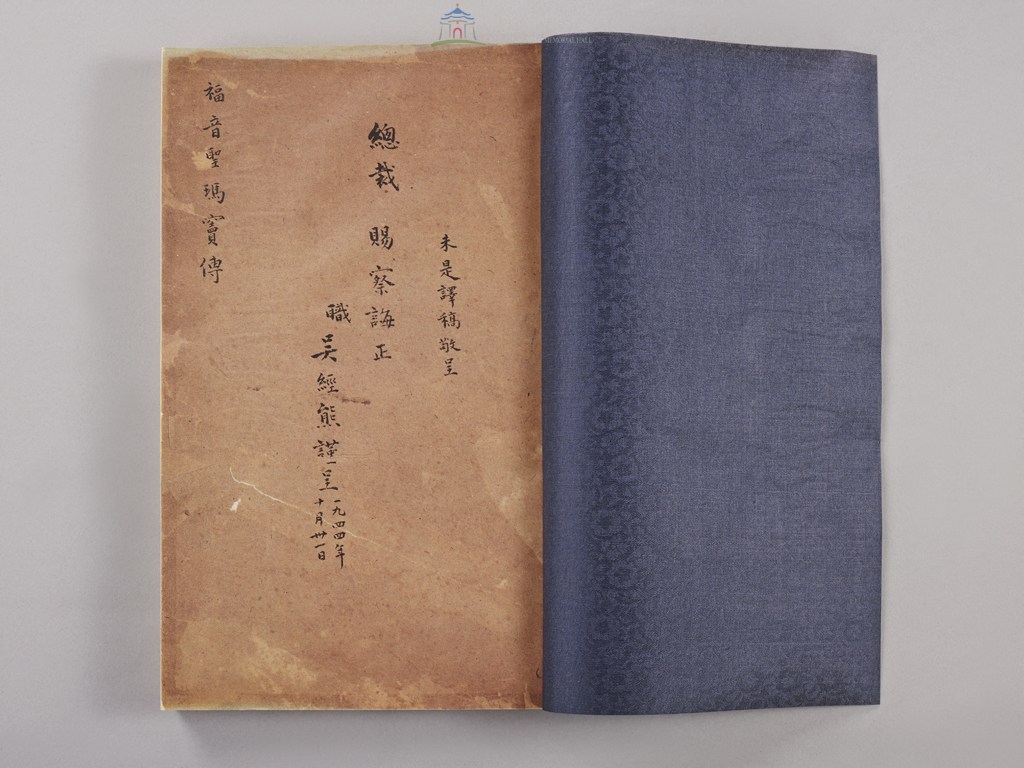 未是譯稿敬呈
總裁 賜察誨正
職吳經熊謹呈
一九四四年
十月卅一日
福音聖瑪竇傳